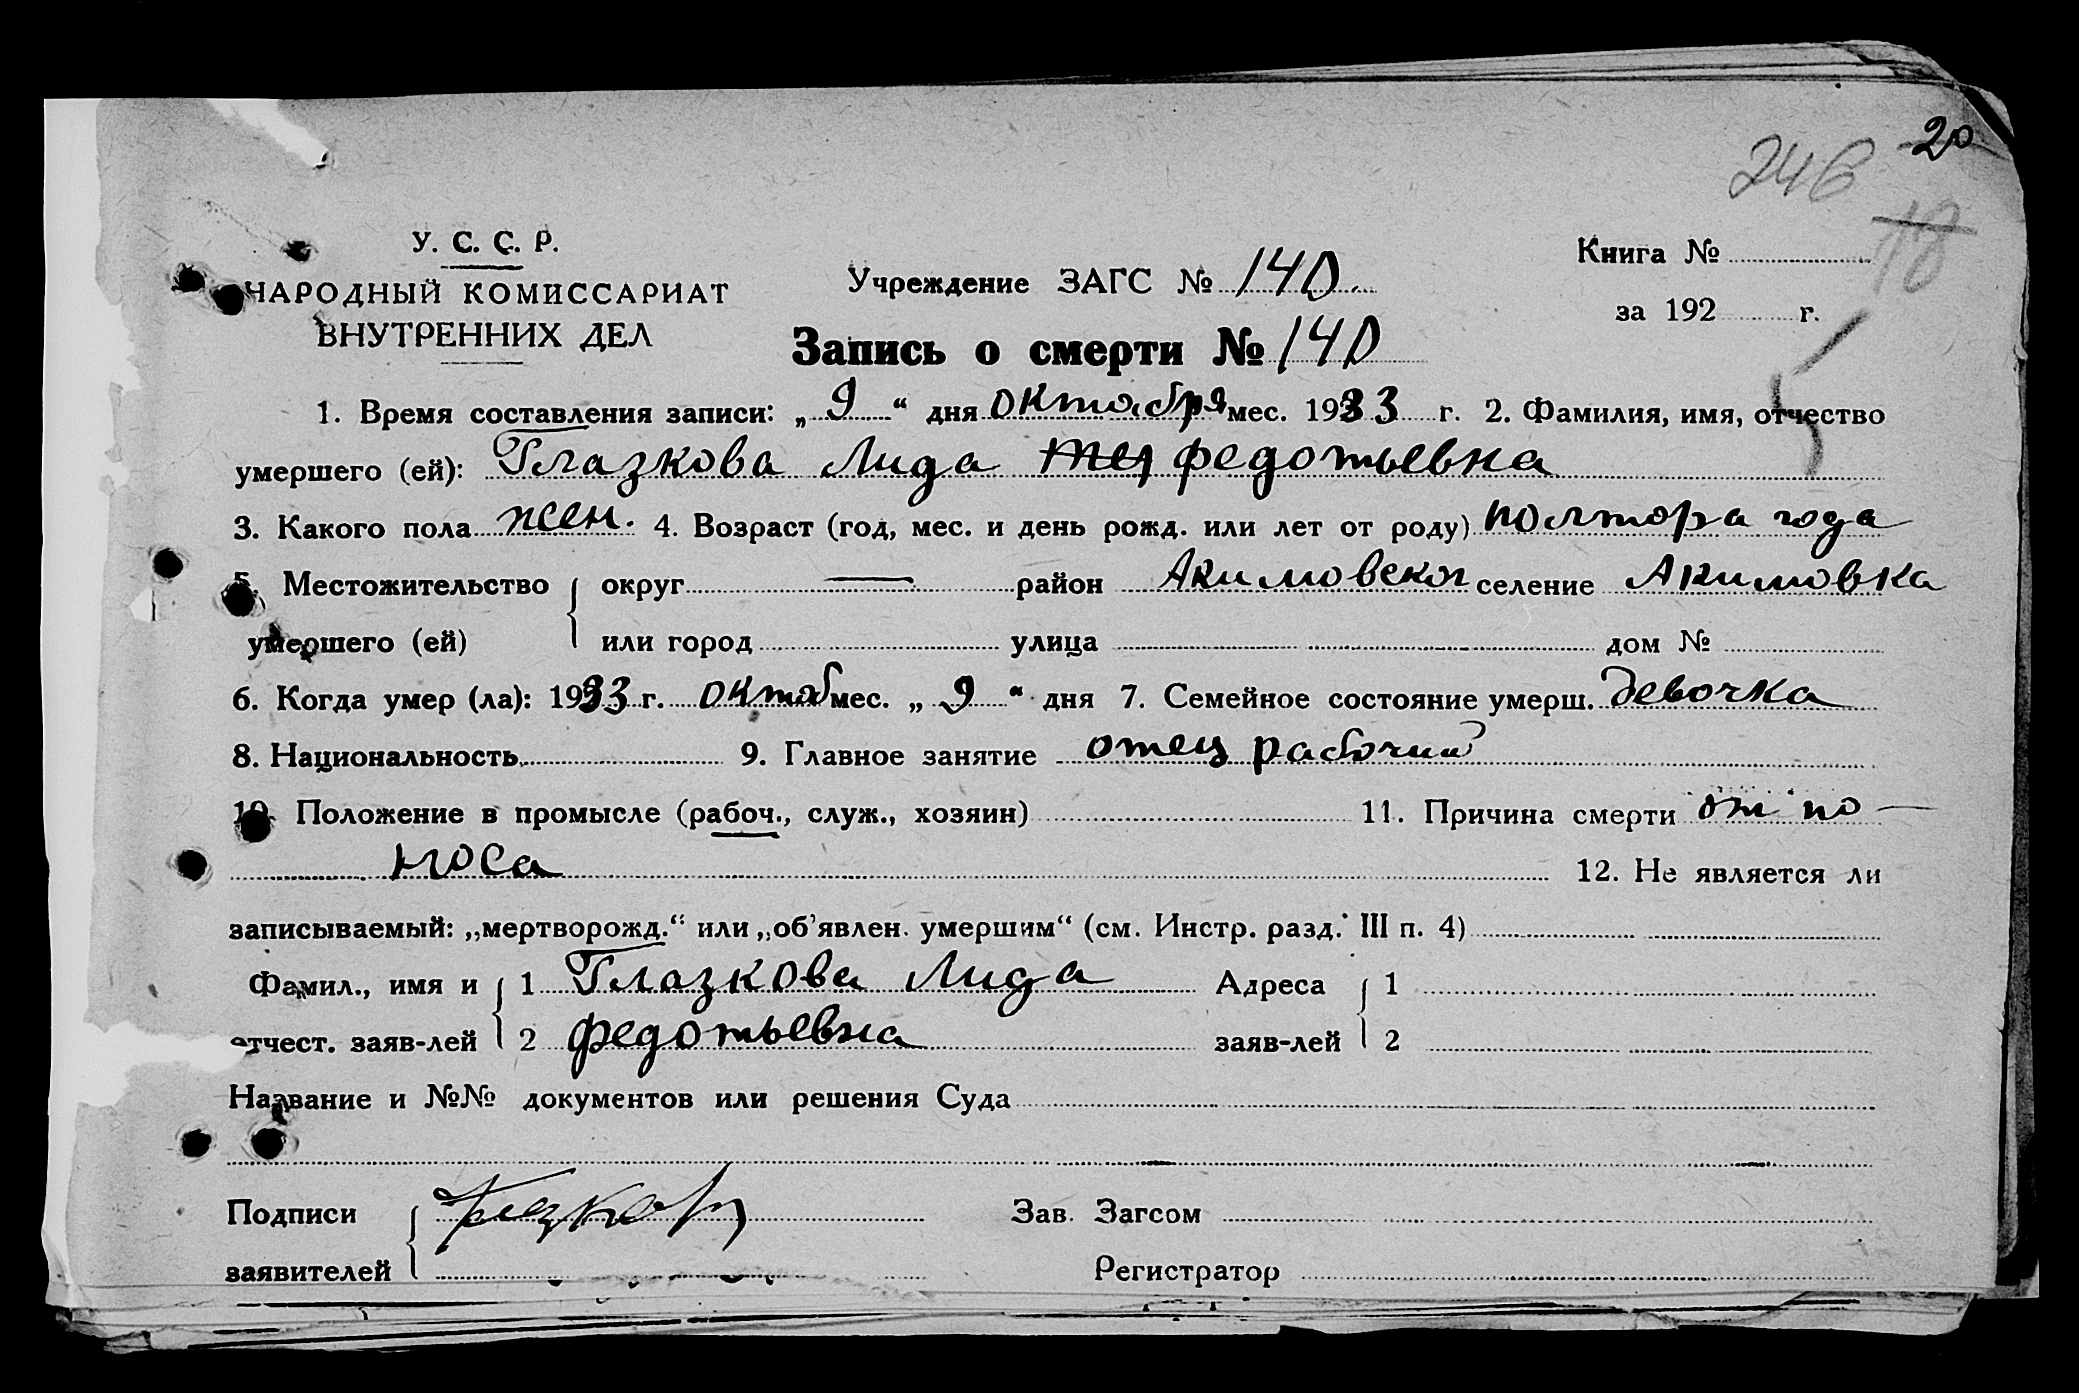 20
246
18
У. С. С. Р.
НАРОДНЫЙ КОМИССАРИАТ
ВНУТРЕННИХ ДЕЛ
Учреждение ЗАГС № 140
Книга №
за 192 г.
Запись о смерти № 140
1. Время составления записи: „ 9 “ дня октября мес. 1933 г. 2. Фамилия, имя, отчество
умершего (ей): Глазкова Лида федотьевна
3. Какого пола жен. 4. Возраст (год, мес. и день рожд. или лет от роду) полтора года
5. Местожительство округ — район Акимовског селение Акимовка
умершего (ей) или город улица дом №
6. Когда умер (ла): 1933 г. октяб мес. „ 9 “ дня 7. Семейное состояние умерш. девочка
8. Национальность 9. Главное занятие отец рабочий
10. Положение в промысле (рабоч., служ., хозяин) 11. Причина смерти от по-
носа 12. Не является ли
записываемый: „мертворожд.“ или „об’явлен. умершим“ (см. Инстр. разд. III п. 4)
Фамил., имя и 1 Глазкова Лида Адреса 1
отчест. заяв-лей 2 федотьевна заяв-лей 2
Название и №№ документов или решения Суда
Подписи Зав. Загсом
заявителей Регистратор